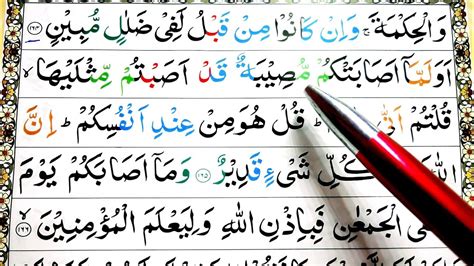 وَالْحِكْمَةَ ۚ وَاِنْ كَانُوْا مِنْ قَبْلُ لَفِىْ ضَلٰلٍ مُّبِيْنٍ
اَوَلَمَّاۤ اَصَابَتْكُمْ مُّصِيْبَةٌ قَدْ اَصَبْتُمْ مِّثْلَيْهَا ۙ
قُلْتُمْ اَنّٰى ؕ قُلْ هُوَ مِنْ عِنْدِ اَنْفُسِكُمْ ؕ اِنَّ
اللّٰهَ كُلِّ شَىْءٍ قَدِيْرٌ ﴿۱۶۵﴾ وَمَاۤ اَصَابَكُمْ يَوْمَ
الْجَمْعٰنِ فَبِاِذْنِ اللّٰهِ وَلِيَعْلَمَ الْمُؤْمِنِيْنَ ﴿۱۶۶﴾